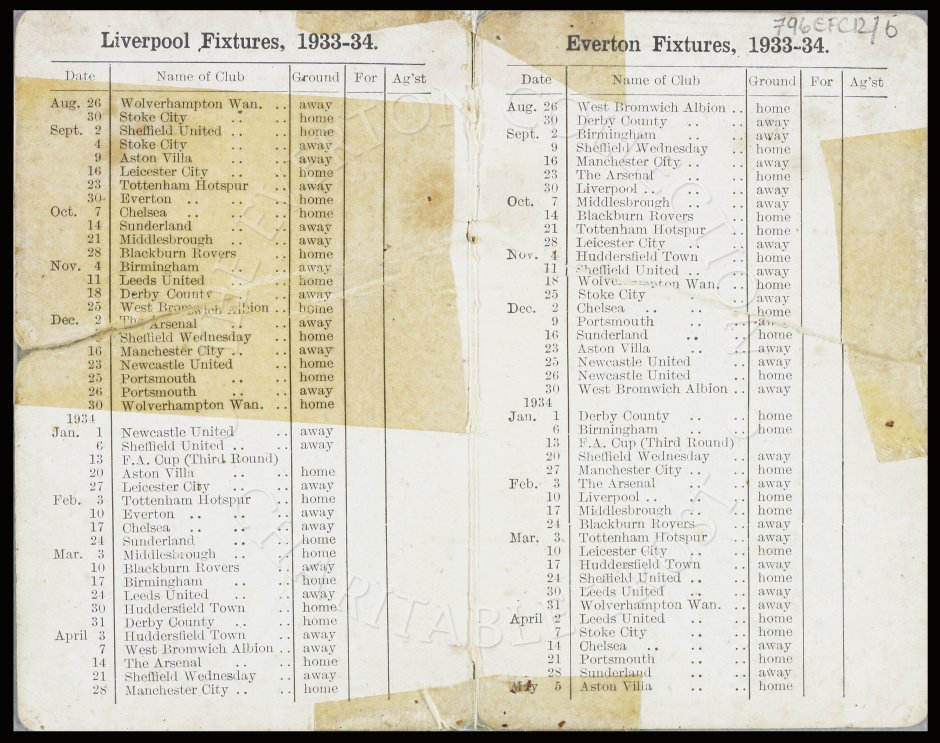 796EFCR/6
Liverpool Fixtures, 1933-34.
Date Name of Club Ground For Ag'st
Aug. 26 Wolverhampton Wan. .. away
30 Stoke City .. .. home
Sept. 2 Sheffield United .. .. home
4 Stoke City .. .. away
9 Aston Villa .. .. away
16 Leicester City .. .. home
23 Tottenham Hotspur .. away
30 Everton .. .. .. home
Oct. 7 Chelsea .. .. .. home
14 Sunderland .. .. away
21 Middlesbrough .. .. away
28 Blackburn Rovers .. home
Nov. 4 Birmingham .. .. away
11 Leeds United .. .. home
18 Derby County .. .. away
25 West Bromwich Albion .. home
Dec. 2 The Arsenal .. .. away
Sheffield Wednesday .. home
16 Manchester City .. .. away
23 Newcastle United .. home
25 Portsmouth .. .. home
26 Portsmouth .. .. away
30 Wolverhampton Wan. .. home
1934
Jan. 1 Newcastle United .. away
6 Sheffield United .. .. away
13 F.A. Cup (Third Round)
20 Aston Villa .. .. home
27 Leicester City .. .. away
Feb. 3 Tottenham Hotspur .. home
10 Everton .. .. .. away
17 Chelsea .. .. .. away
24 Sunderland .. .. home
Mar. 3 Middlesbrough .. .. home
10 Blackburn Rovers .. away
17 Birmingham .. .. home
24 Leeds United .. .. away
30 Huddersfield Town .. home
31 Derby County .. .. home
April 3 Huddersfield Town .. away
7 West Bromwich Albion .. away
14 The Arsenal .. .. home
21 Sheffield Wednesday .. away
28 Manchester City .. .. home
Everton Fixtures, 1933-34.
Date Name of Club Ground For Ag'st
Aug. 26 West Bromwich Albion .. home
30 Derby County .. .. away
Sept. 2 Birmingham .. .. away
9 Sheffield Wednesday .. home
16 Manchester City .. .. away
23 The Arsenal .. .. home
30 Liverpool .. .. .. away
Oct. 7 Middlesbrough .. .. away
14 Blackburn Rovers .. home
21 Tottenham Hotspur .. home
28 Leicester City .. .. away
Nov. 4 Huddersfield Town .. home
11 Sheffield United .. .. away
18 Wan. .. home
25 Stoke City .. .. away
Dec. 2 Chelsea .. .. .. home
9 Portsmouth .. ..
16 Sunderland .. .. home
23 Aston Villa .. .. away
25 Newcastle United .. away
26 Newcastle United .. home
30 West Bromwich Albion .. away
1934
Jan. 1 Derby County .. .. home
6 Birmingham .. .. home
13 F.A. Cup (Third Round)
20 Sheffield Wednesday .. away
27 Manchester City .. .. home
Feb. 3 The Arsenal .. .. away
10 Liverpool .. .. .. home
17 Middlesbrough .. .. home
24 Blackburn Rovers .. away
Mar. 3 Tottenham Hotspur .. away
10 Leicester City .. .. home
17 Huddersfield Town .. away
24 Sheffield United .. .. home
30 Leeds United .. .. away
31 Wolverhampton Wan. .. away
April 2 Leeds United .. .. home
7 Stoke City .. .. home
14 Chelsea .. .. .. away
21 Portsmouth .. .. home
28 Sunderland .. .. away
May 5 Aston Villa .. .. home
EVERTON COLLECTION
CHARITABLE TRUST